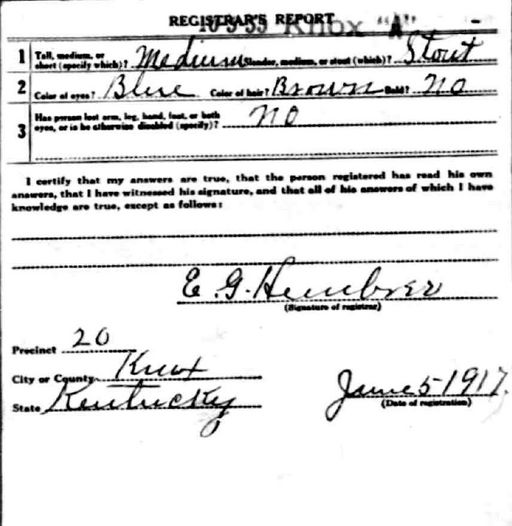 REGISTRAR'S REPORT
10-5-33 Knox "A"
1 Tall, medium, or short (specify which)? Medium Slender, medium, or stout (which)? Stout
2 Color of eyes? Blue Color of hair? Brown Bald? NO
3 Has person lost arm, leg, hand, foot, or both eyes, or is he otherwise disabled (specify)? NO
I certify that my answers are true, that the person registered has read his own
answers, that I have witnessed his signature, and that all of his answers of which I have
knowledge are true, except as follows:
E. G.
(Signature of registrar)
Precinct 20
City or County Knox
State Kentucky
June 5 1917.
(Date of registration)